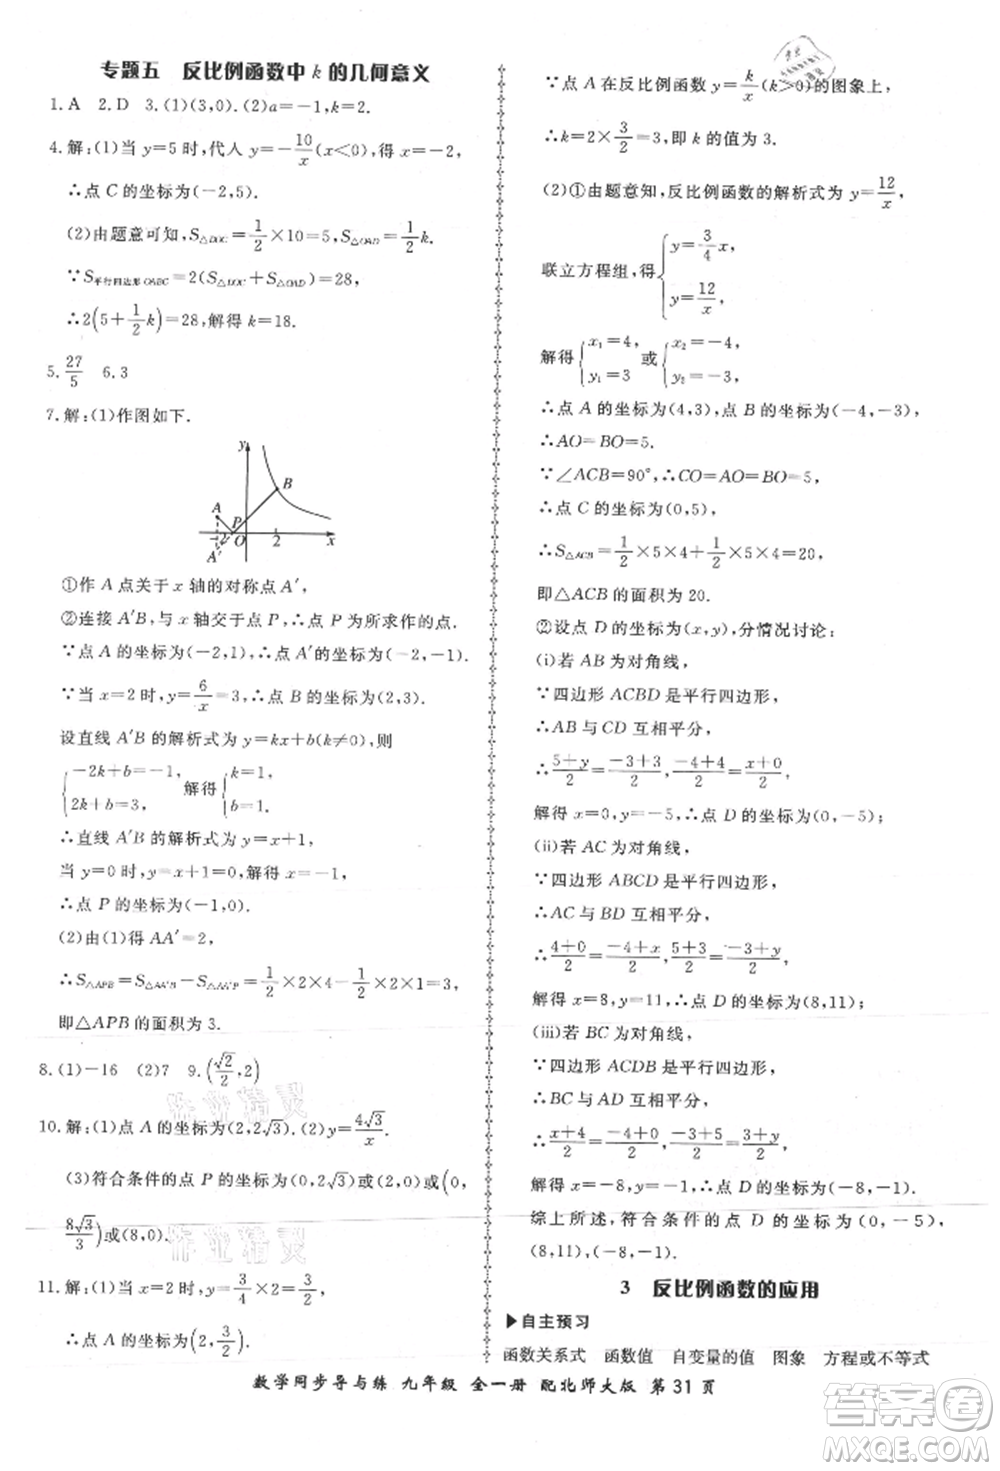 专题五 反比例函数中 k 的几何意义
1.A 2.D 3.(1)(3,0).(2)a=-1,k=2.
4.解:(1)当 y=5 时,代人 y=-10/x(x<0),得 x=-2,
∴点 C 的坐标为(-2,5).
(2)由题意可知,S△DOC=1/2×10=5,S△OAD=1/2k.
∵S平行四边形OABC=2(S△DOC+S△OAD)=28,
∴2(5+1/2k)=28,解得 k=18.
5.27/5 6.3
7.解:(1)作图如下.
y
B
A
P
-2 O 2 x
A′
①作 A 点关于 x 轴的对称点 A′,
②连接 A′B,与 x 轴交于点 P,∴点 P 为所求作的点.
∵点 A 的坐标为(-2,1),∴点 A′的坐标为(-2,-1).
∵当 x=2 时,y=6/x=3,∴点 B 的坐标为(2,3).
设直线 A′B 的解析式为 y=kx+b(k≠0),则
{-2k+b=-1, 2k+b=3, 解得{k=1, b=1.
∴直线 A′B 的解析式为 y=x+1,
当 y=0 时,y=x+1=0,解得 x=-1.
∴点 P 的坐标为(-1,0).
(2)由(1)得 AA′=2,
∴S△APB=S△AA′B-S△AA′P=1/2×2×4-1/2×2×1=3,
即△APB 的面积为 3.
8.(1)-16 (2)7 9.(√2/2,2)
10.解:(1)点 A 的坐标为(2,2√3).(2)y=4√3/x.
(3)符合条件的点 P 的坐标为(0,2√3)或(4,0)或(0,
8√3/3)或(8,0).
11.解:(1)当 x=2 时,y=3/4×2=3/2,
∴点 A 的坐标为(2,3/2).
∵点 A 在反比例函数 y=k/x(k>0)的图象上,
∴k=2×3/2=3,即 k 的值为 3.
(2)①由题意知,反比例函数的解析式为 y=12/x,
联立方程组,得{y=3/4x, y=12/x,
解得{x₁=4, y₁=3 或{x₂=-4, y₂=-3,
∴点 A 的坐标为(4,3),点 B 的坐标为(-4,-3),
∴AO=BO=5.
∵∠ACB=90°,∴CO=AO=BO=5,
∴点 C 的坐标为(0,5),
∴S△ACB=1/2×5×4+1/2×5×4=20,
即△ACB 的面积为 20.
②设点 D 的坐标为(x,y),分情况讨论:
(i)若 AB 为对角线,
∵四边形 ACBD 是平行四边形,
∴AB 与 CD 互相平分,
∴5+y/2=-3+3/2,-4+4/2=x+0/2,
解得 x=0,y=-5,∴点 D 的坐标为(0,-5);
(ii)若 AC 为对角线,
∵四边形 ABCD 是平行四边形,
∴AC 与 BD 互相平分,
∴4+0/2=-4+x/2,5+3/2=-3+y/2,
解得 x=8,y=11,∴点 D 的坐标为(8,11);
(iii)若 BC 为对角线,
∵四边形 ACDB 是平行四边形,
∴AD 与 BC 互相平分,
∴x+4/2=-4+0/2,-3+5/2=y+3/2,
解得 x=-8,y=-1,∴点 D 的坐标为(-8,-1).
综上所述,符合条件的点 D 的坐标为(0,-5),
(8,11),(-8,-1).
3 反比例函数的应用
▶自主预习
函数关系式 函数值 自变量的值 图象 方程或不等式
数学同步导与练 九年级 全一册 配北师大版 第 31 页
答案卷
MXQE.COM
作业精灵
作业精灵